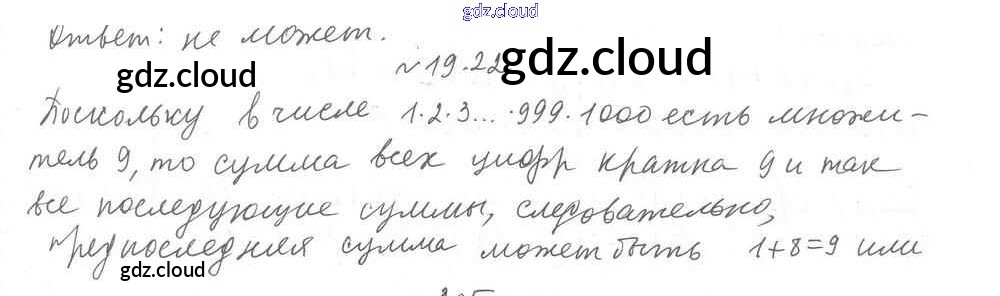 gdz.cloud
Ответ: не может.
№19.22 gdz.cloud
gdz.cloud
Поскольку в числе 1·2·3... ·999·1000 есть множи-
тель 9, то сумма всех цифр кратна 9 и так
все последующие суммы, следовательно,
предпоследняя сумма может быть 1+8=9 или
gdz.cloud